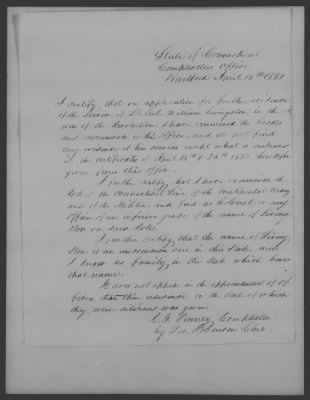 State of Connecticut
Comptrollers Office
Hartford April 15th 1851
I certify, that on application for further evidence
of the service of Lt. Col. William Livingston in the
war of the Revolution I have examined the books
and documents in this office, and do not find
any evidence of his service except what is contained
in the certificates of April 13th & 24th 1850 heretofore
given from this office.
I further certify that I have examined the
Rolls of the Connecticut Line of the Continental Army
and of the Militia and find no Colonel or any
officer of an inferior grade of the name of Living-
ston on said Rolls.
I further certify that the name of Living-
ston is an uncommon one in this State and
I know no family in the State which bears
that name.
It does not appear in the appointment of of-
ficers that their residence or the State of which
they were citizens was given.
Comptroller
Clerk.